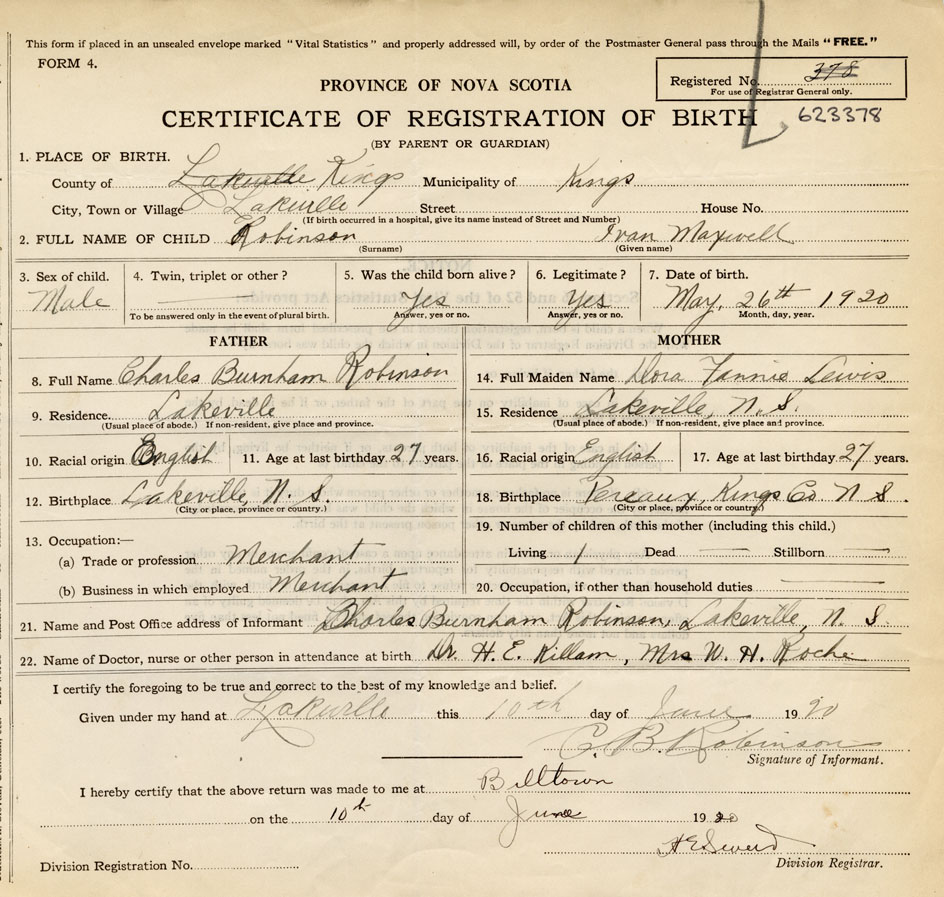 This form if placed in an unsealed envelope marked "Vital Statistics" and properly addressed will, by order of the Postmaster General pass through the Mails "FREE."
FORM 4.
Registered No. 378
For use of Registrar General only.
PROVINCE OF NOVA SCOTIA
CERTIFICATE OF REGISTRATION OF BIRTH
623378
(BY PARENT OR GUARDIAN)
1. PLACE OF BIRTH.
County of Lakeville Kings Municipality of Kings
City, Town or Village Lakeville Street House No.
(If birth occurred in a hospital, give its name instead of Street and Number)
2. FULL NAME OF CHILD Robinson Ivan Maxwell
(Surname) (Given name)
3. Sex of child. 4. Twin, triplet or other? 5. Was the child born alive? 6. Legitimate? 7. Date of birth.
Male Yes Yes May, 26th 1920
To be answered only in the event of plural birth. Answer, yes or no. Answer, yes or no. Month, day, year.
FATHER MOTHER
8. Full Name Charles Burnham Robinson 14. Full Maiden Name Dora Fannie Lewis
9. Residence. Lakeville 15. Residence Lakeville, N.S.
(Usual place of abode.) If non-resident, give place and province. (Usual place of abode.) If non-resident, give place and province.
10. Racial origin English 11. Age at last birthday 27 years. 16. Racial origin English 17. Age at last birthday 27 years.
12. Birthplace Lakeville, N. S. 18. Birthplace Pereaux, Kings Co. N S.
(City or place, province or country.) (City or place, province or country)
19. Number of children of this mother (including this child.)
13. Occupation:—
(a) Trade or profession Merchant Living 1 Dead — Stillborn —
(b) Business in which employed Merchant 20. Occupation, if other than household duties —
21. Name and Post Office address of Informant Charles Burnham Robinson, Lakeville, N. S.
22. Name of Doctor, nurse or other person in attendance at birth Dr. H. E. Killam, Mrs W. H. Roche
I certify the foregoing to be true and correct to the best of my knowledge and belief.
Given under my hand at Lakeville this 10th day of June 1920
C. B. Robinson
Signature of Informant.
I hereby certify that the above return was made to me at Billtown
on the 10th day of June 1920
Division Registration No. Division Registrar.